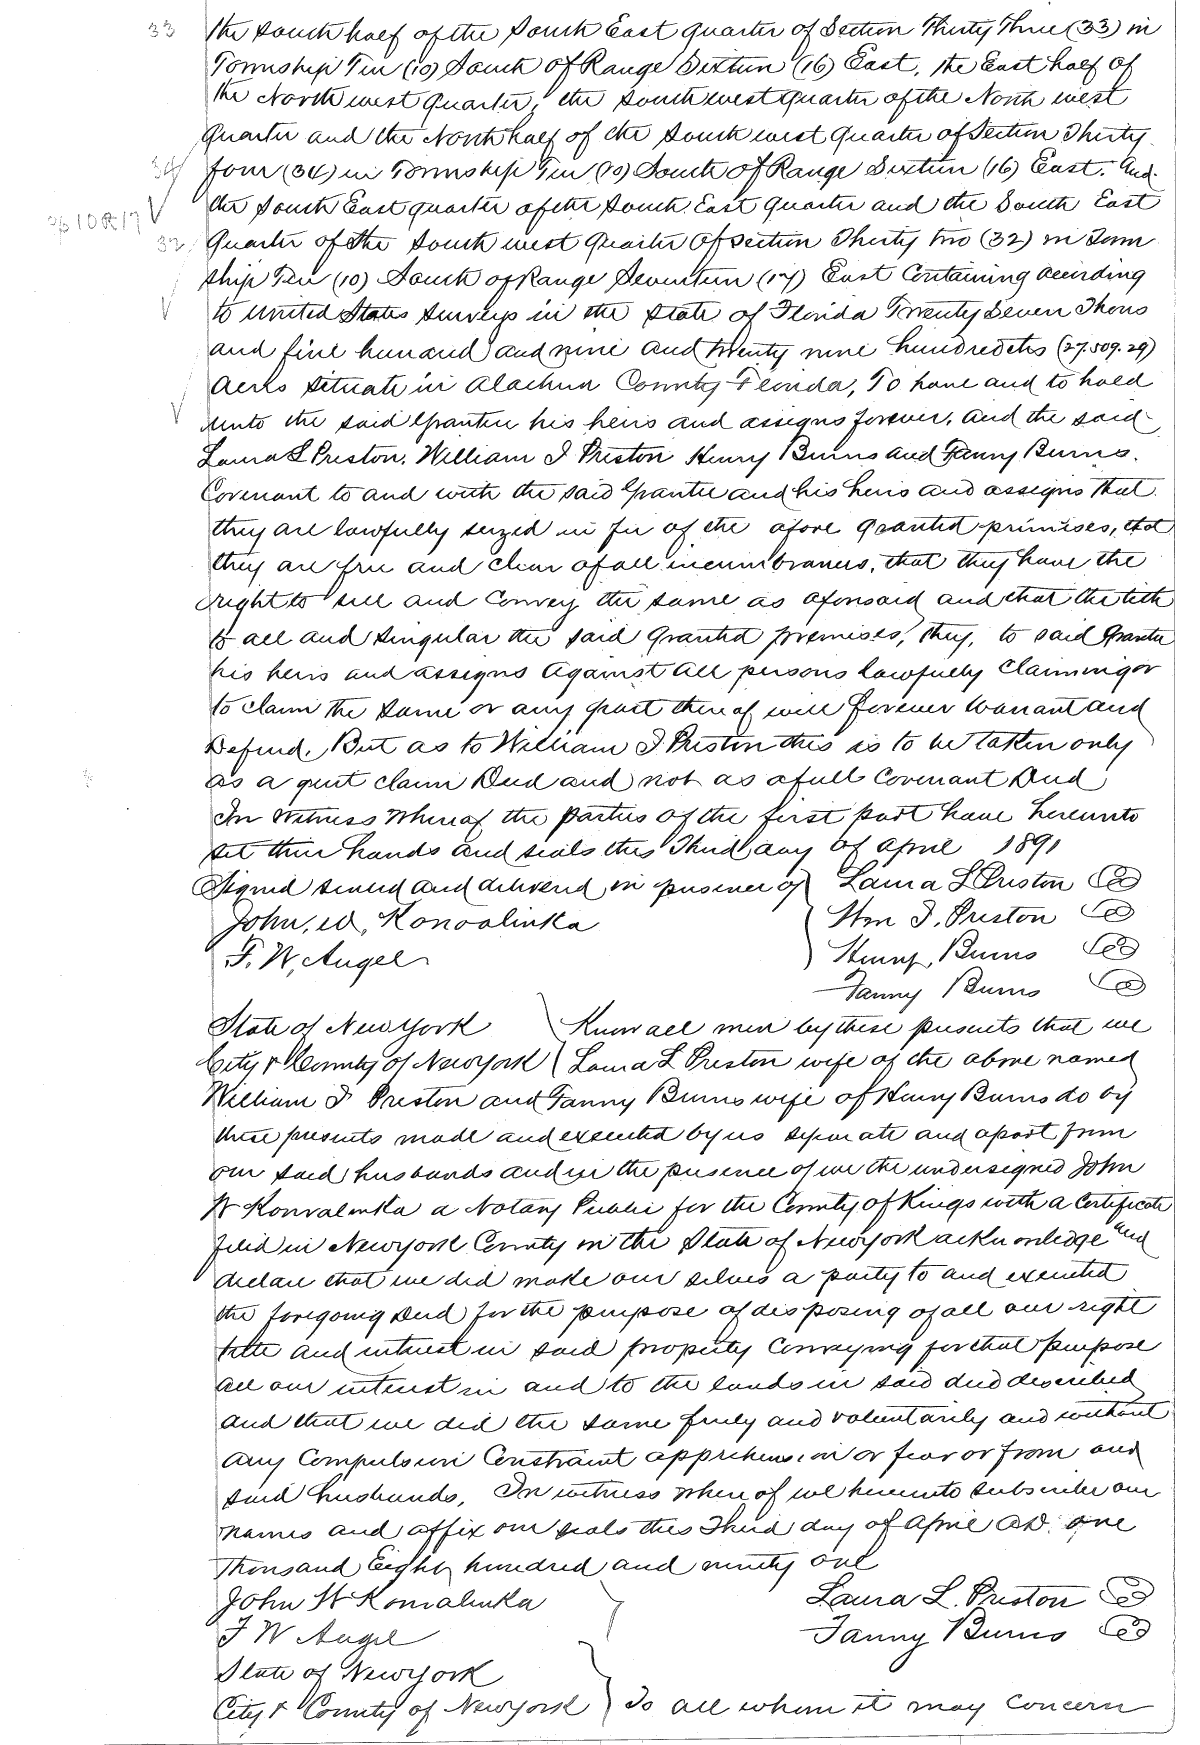 33 the South half of the South East quarter of Section Thirty Three (33) in
Township Ten (10) South of Range Sixteen (16) East, the East half of
the North west quarter, the South west quarter of the North west
quarter and the North half of the South west quarter of Section Thirty
34 four (34) in Township Ten (10) South of Range Sixteen (16) East. And
the South East quarter of the South East quarter and the South East
10 R 17
32 quarter of the South west quarter of Section Thirty two (32) in Town
ship Ten (10) South of Range Seventeen (17) East Containing according
to United States Surveys in the State of Florida Twenty Seven Thous
and five hundred and nine and twenty nine hundredths (27.509.29)
acres situate in Alachua County Florida, To have and to hold
unto the said Grantee his heirs and assigns forever, and the said
Laura L Preston, William I Preston Henry Burns and Fanny Burns.
Covenant to and with the said Grantee and his heirs and assigns that
they are lawfully seized in fee of the afore granted premises, that
they are free and clear of all incumbrances, that they have the
right to sell and Convey the same as aforesaid and that the title
to all and singular the said granted premises, they, to said Grantee
his heirs and assigns against all persons lawfully Claiming or
to claim the same or any part thereof will forever Warrant and
Defend. But as to William I Preston this is to be taken only
as a quit claim Deed and not as a full Covenant Deed
In Witness Whereof the parties of the first part have hereunto
set their hands and seals this Third day of April 1891
Signed sealed and delivered in presence of Laura L Preston
John, W, Konvalinka Wm I. Preston
F. W, Angel Henry, Burns
Fanny Burns
State of New York Know all men by these presents that we
City & County of New York Laura L Preston wife of the above named
William I Preston and Fanny Burns wife of Henry Burns do by
these presents made and executed by us separate and apart from
our said husbands and in the presence of me the undersigned John
W Konvalinka a Notary Public for the County of Kings with a Certificate
filed in New York County in the State of New York acknowledge and
declare that we did make our selves a party to and executed
the foregoing Deed for the purpose of disposing of all our right
title and interest in said property Conveying for that purpose
all our interest in and to the lands in said deed described
and that we did the same freely and voluntarily and without
any Compulsion Constraint apprehension or fear or from and
said husbands, In witness whereof we hereunto subscribe our
names and affix our seals this Third day of April AD. one
Thousand Eight hundred and ninety one
John W Konvalinka Laura L. Preston
F W Angel Fanny Burns
State of New York
City & County of New York To all whom it may Concern